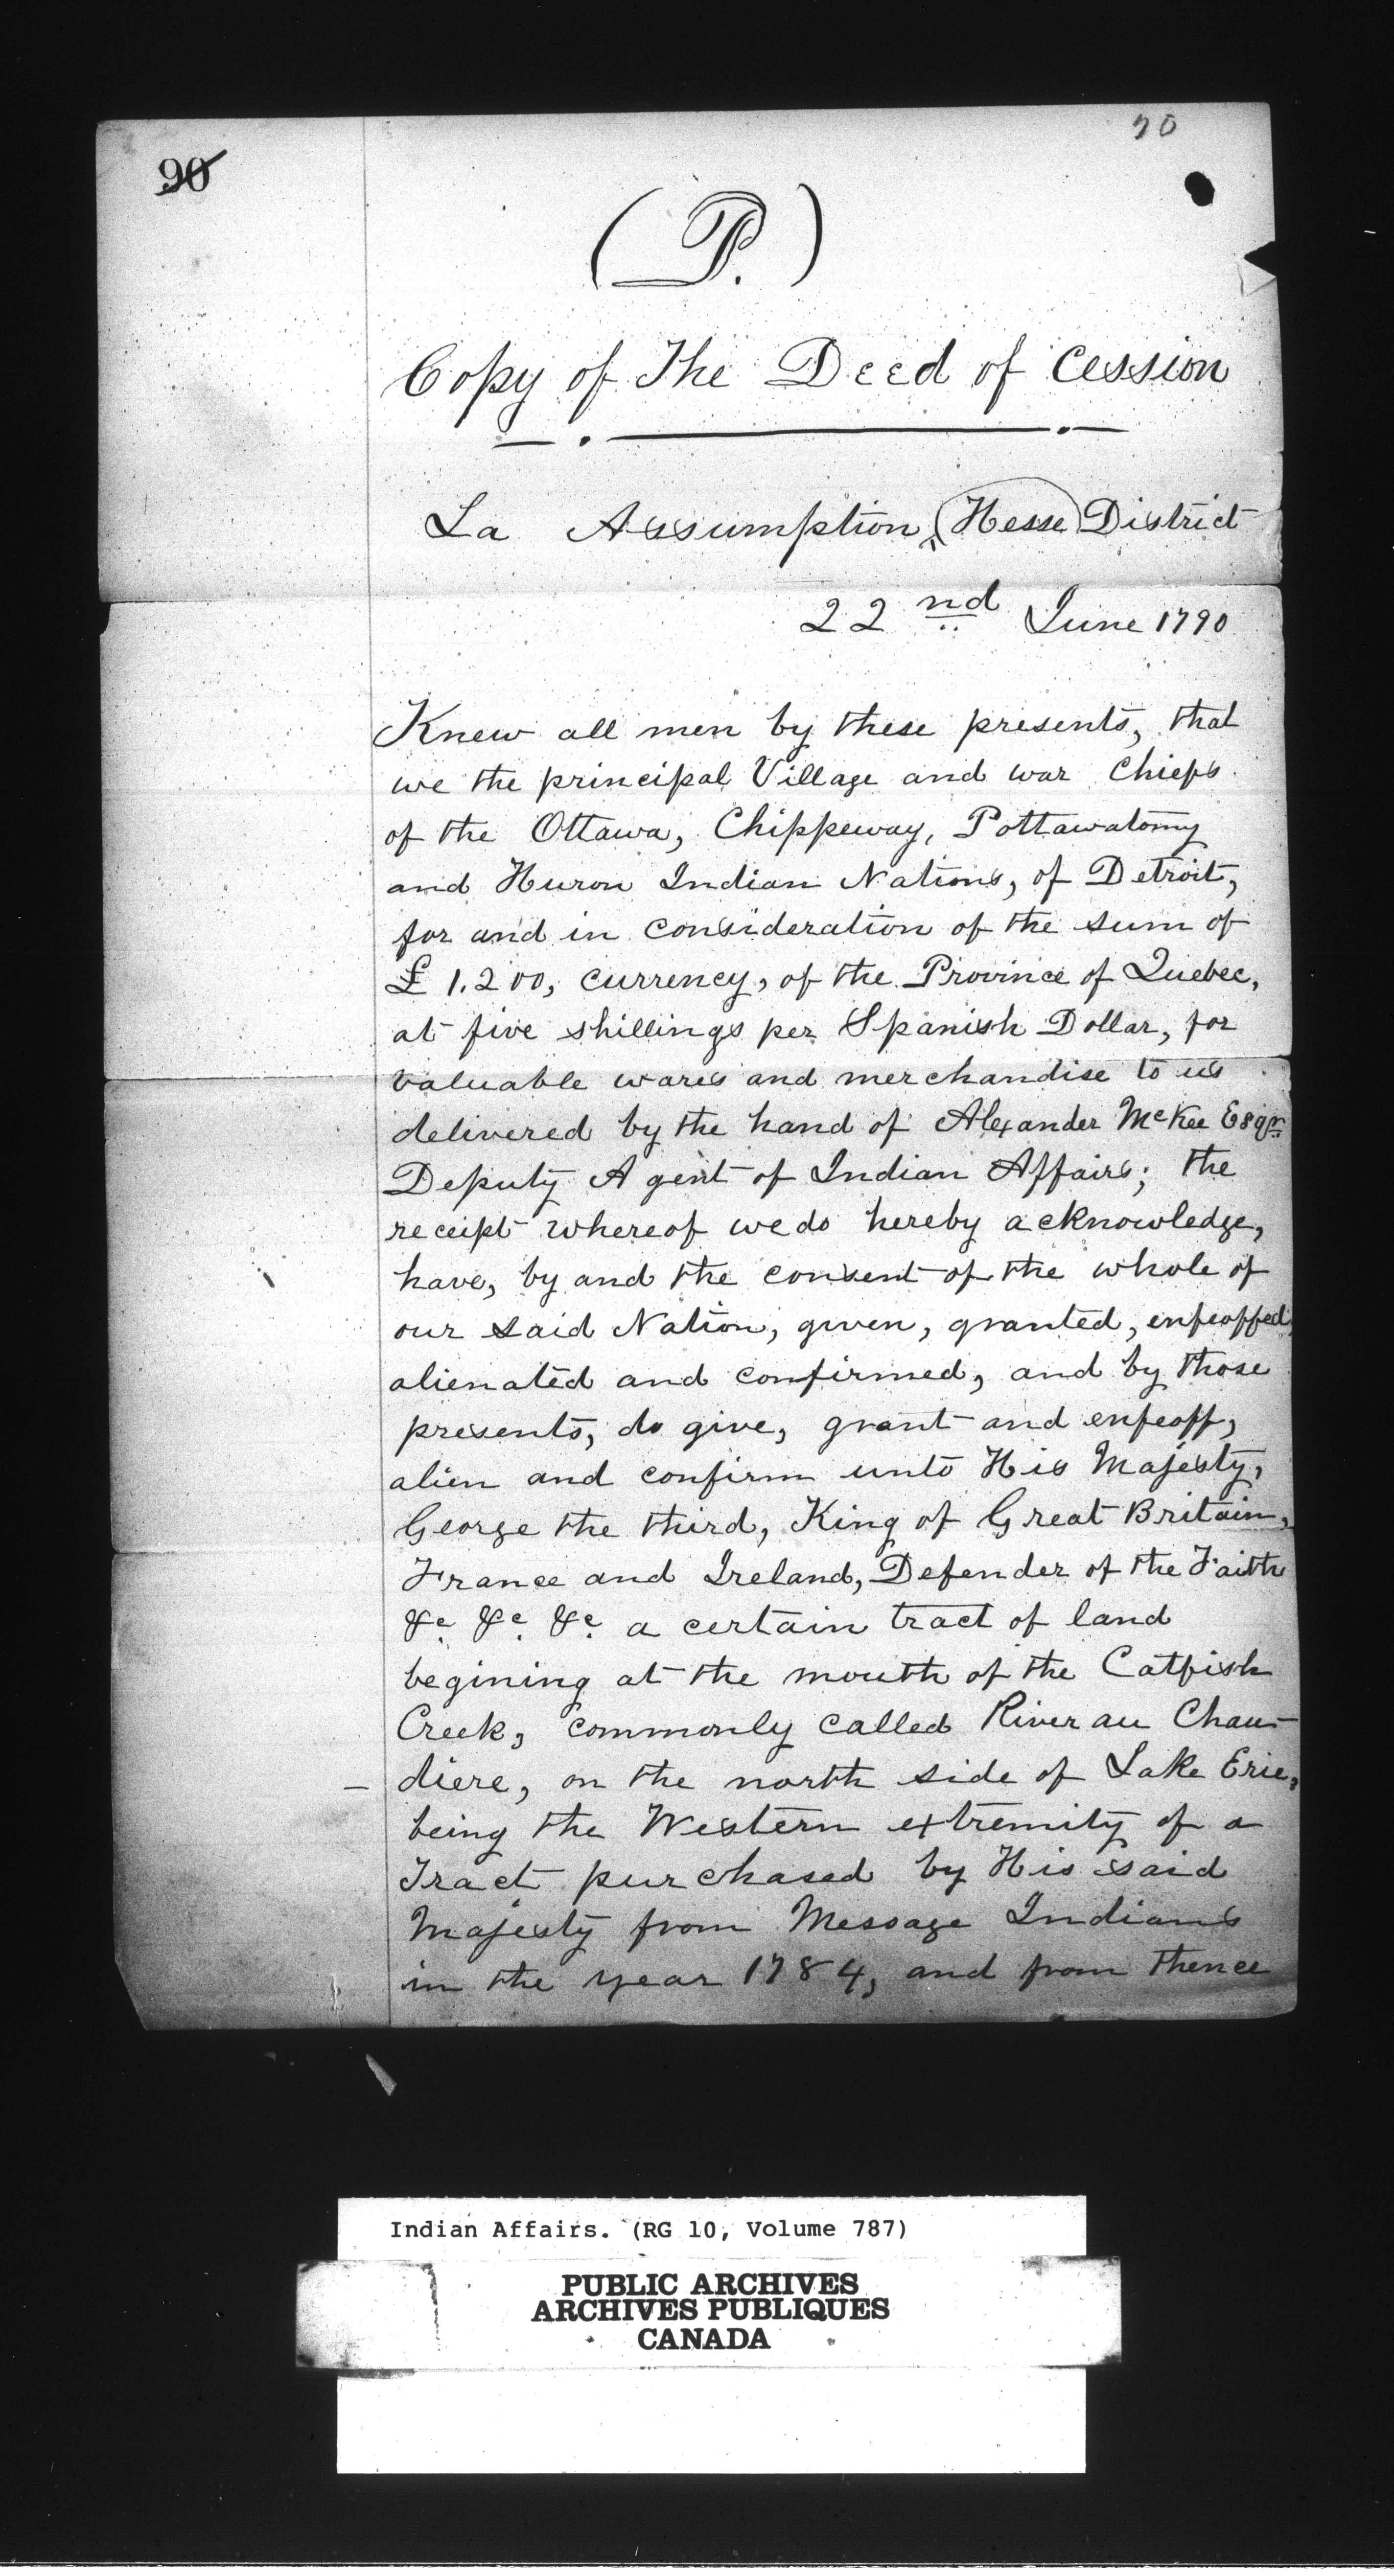 70
90
(P.)
Copy of The Deed of Cession
La Assumption, (Hesse) District
22nd June 1790
Knew all men by these presents, that
we the principal Village and war Chiefs
of the Ottawa, Chippeway, Pottawatomy
and Huron Indian Nations, of Detroit,
for and in consideration of the sum of
£ 1.200, currency, of the Province of Quebec,
at five shillings per Spanish Dollar, for
valuable wares and merchandise to us
delivered by the hand of Alexander McKee Esqr.
Deputy Agent of Indian Affairs; the
receipt whereof we do hereby acknowledge,
have, by and the consent of the whole of
our said Nation, given, granted, enfeoffed,
alienated and confirmed, and by those
presents, do give, grant and enfeoff,
alien and confirm unto His Majesty,
George the third, King of Great Britain,
France and Ireland, Defender of the Faith
&c. &c. &c. a certain tract of land
begining at the mouth of the Catfish
Creek, commonly called River au Chau-
diere, on the north side of Lake Erie,
being the Western extremity of a
Tract purchased by His said
Majesty from Message Indians
in the year 1784, and from thence
Indian Affairs. (RG 10, Volume 787)
PUBLIC ARCHIVES
ARCHIVES PUBLIQUES
CANADA